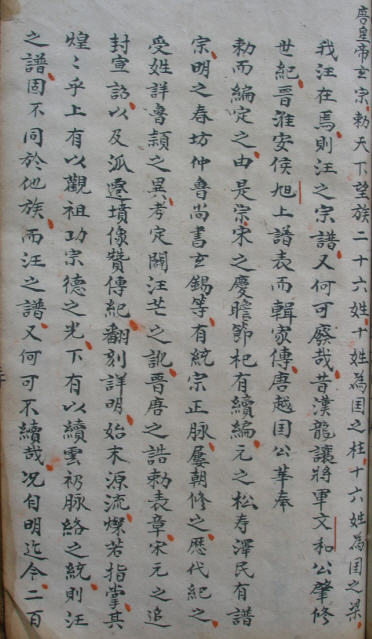 唐皇帝玄宗勅天下望族二十六姓十姓為国之柱十六姓為国之梁
我汪在焉則汪之宗譜又何可廢哉昔漢龍讓將軍文和公肇修
世紀晉淮安侯旭上譜表而輯家傳唐越国公華奉
勅而編定之由是宗宋之慶瞻節杞有續編元之松寿澤民有譜
宗明之春坊仲魯尚書玄錫等有統宗正脉屢朝修之歷代紀之
受姓詳魯頴之異考定闢汪芒之訛晉唐之誥勅表章宋元之追
封宣詔以及派遷墳像贊傳紀翻刻詳明始末源流燦若指掌其
煌〻乎上有以觀祖功宗德之光下有以續雲礽脉絡之統則汪
之譜固不同於他族而汪之譜又何可不續哉况自明迄今二百